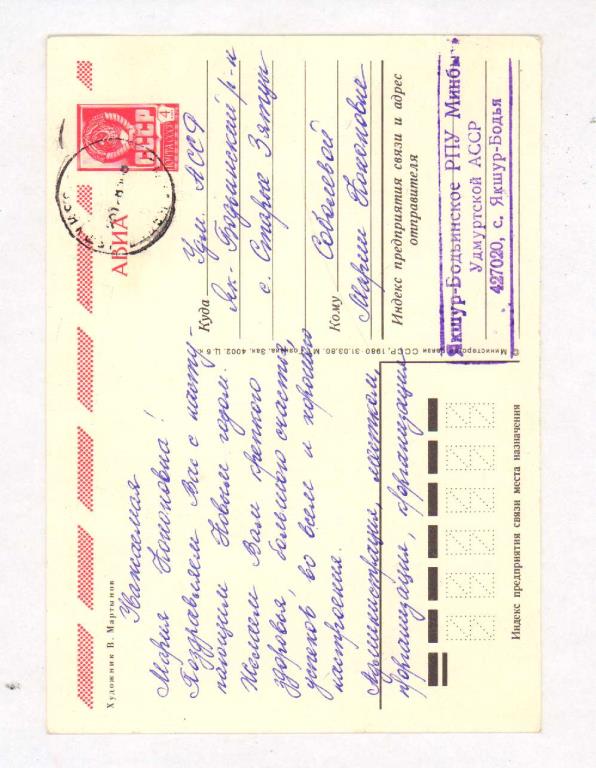 Художник В. Мартынов
АВИА
СССР
ПОЧТА СССР
4
Уважаемая
Мария Кононовна!
Поздравляем Вас с насту-
пающим Новым годом.
Желаем Вам крепкого
здоровья, большого счастья,
успехов во всем и хорошего
настроения.
Администрация, местком,
парторганизация
© Министерство связи СССР, 1980. 31.03.80. М. Гознака. Зак. 4002. Ц. 6 к.
Куда Удм. АССР
Як-Бодьинский р-н
с. Старые Зятцы
Кому Соболевой
Марии Кононовне
Индекс предприятия связи и адрес
отправителя
Якшур-Бодьинское РПУ Минбыт
Удмуртской АССР
427020, с. Якшур-Бодья
Индекс предприятия связи места назначения